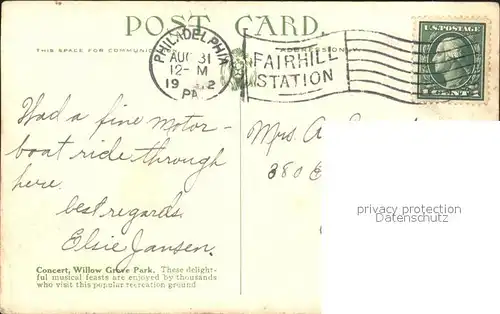 POST CARD.
THIS SPACE FOR
PHILADELPHIA
AUG 31
12-M
19 2
PA.
FAIRHILL
STATION
U.S. POSTAGE
Had a fine motor-
boat ride through
here.
best regards.
Elsie Jansen.
Mrs. A.
380
privacy protection
Datenschutz
Concert, Willow Grove Park. These delight-
ful musical feasts are enjoyed by thousands
who visit this popular recreation ground